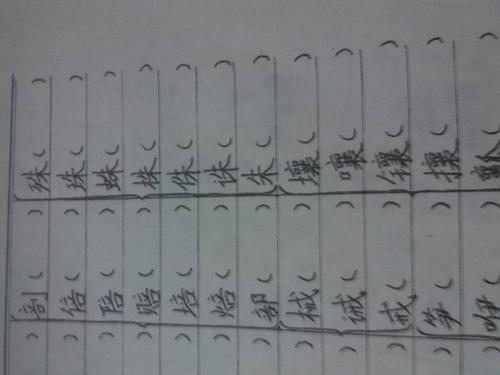 ) 剖( ) 殊( )
) 倍( ) 珠( )
) 陪( ) 蛛( )
) 赔( ) 株( )
) 培( ) 侏( )
) 焙( ) 诛( )
) 部( ) 朱( )
) 械( ) 壤( )
) 诫( ) 嚷( )
) 戒( ) 镶( )
) 笋( ) 攘( )
) 咿( ) ( )